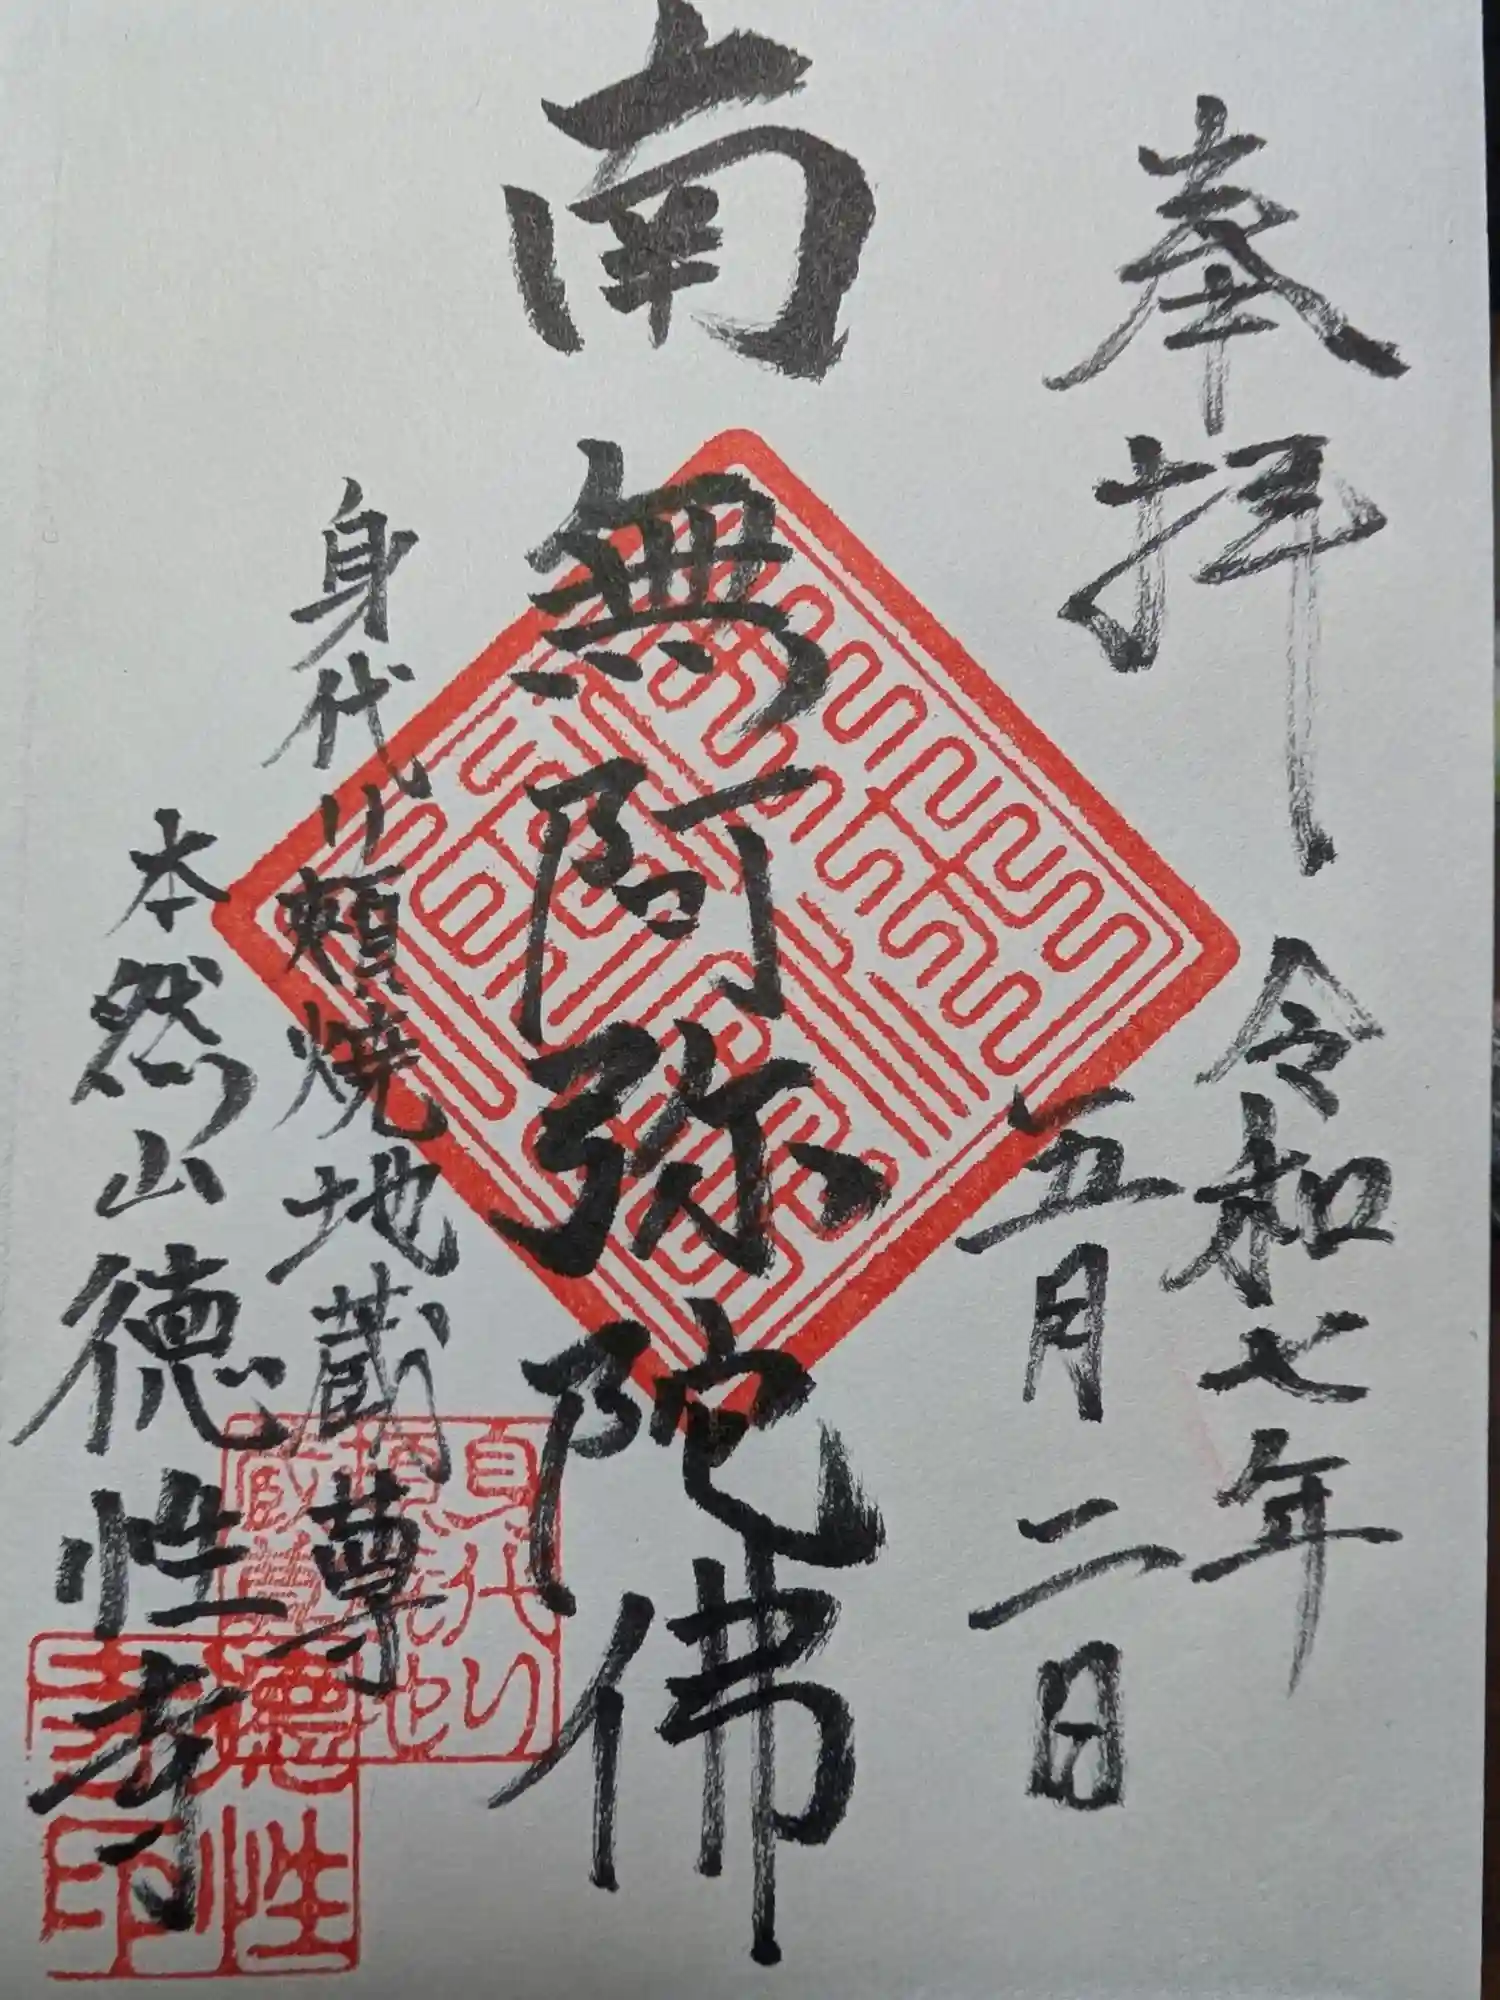 奉拝
令和七年
五月二日
南無阿弥陀佛
身代り頬焼地蔵尊
本然山徳性寺
身代り
徳性
寺印